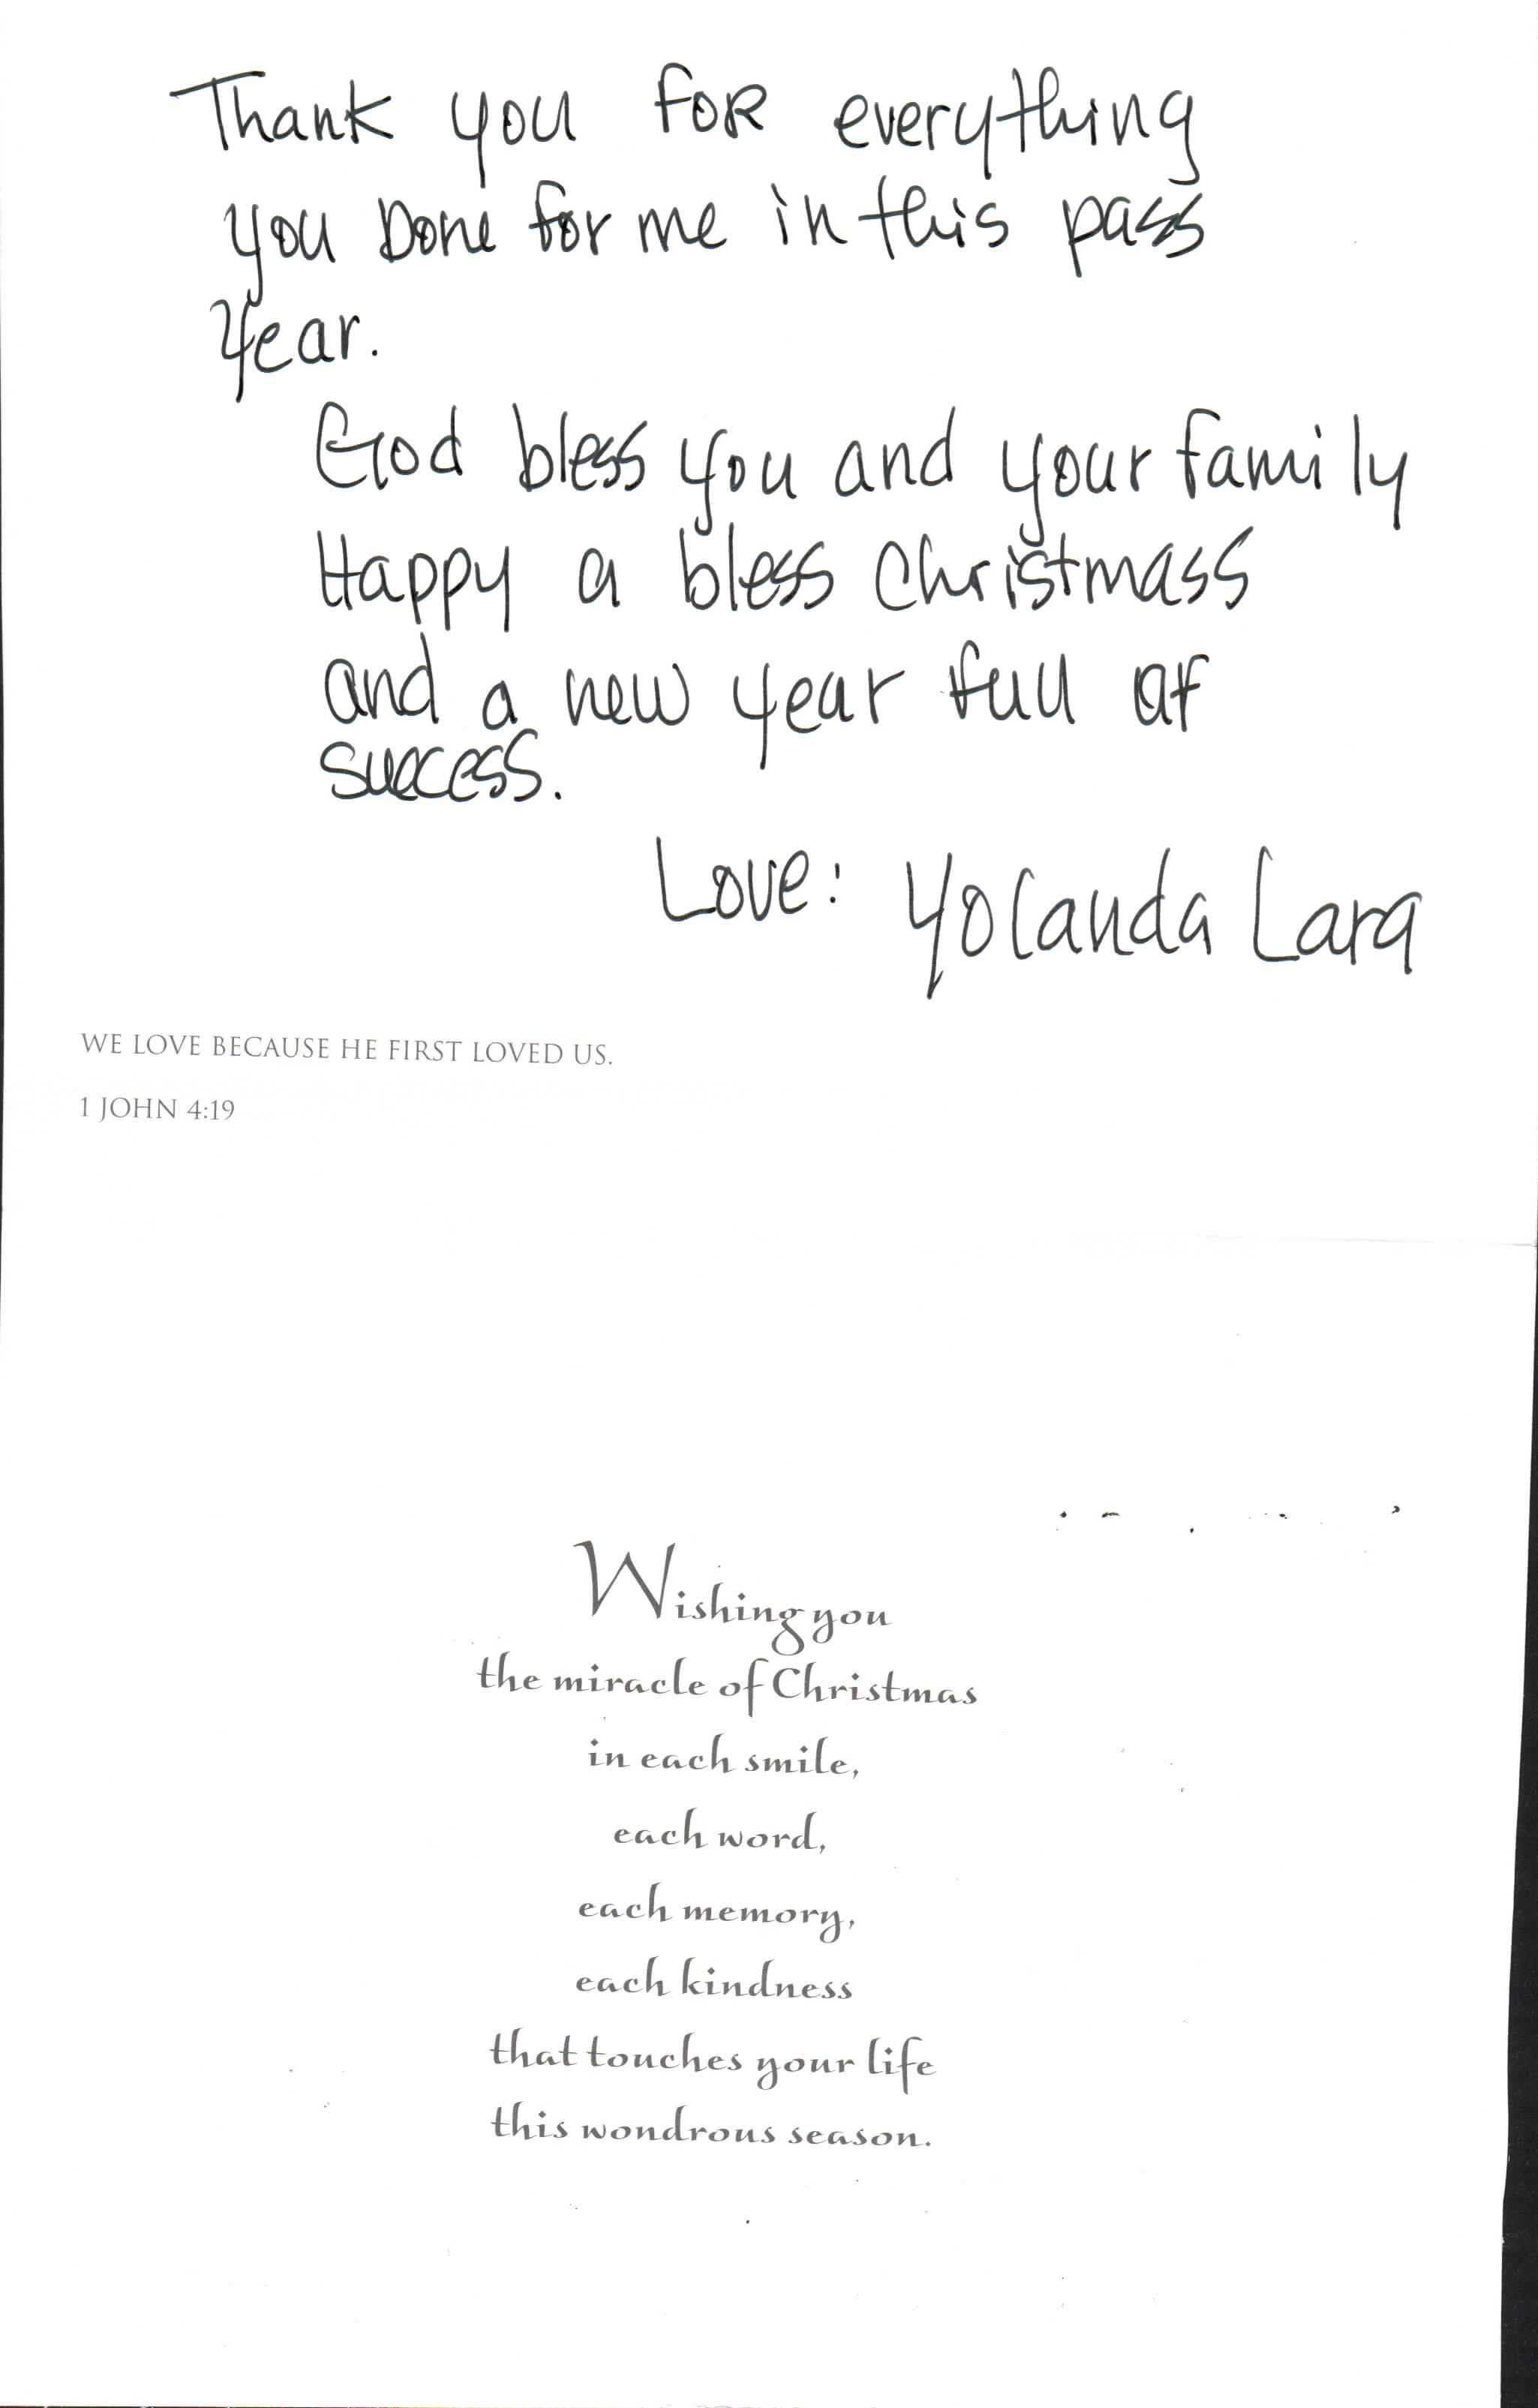 Thank you FOR everything
you Done for me in this pass
Year.
God bless you and your family
Happy a bless Christmass
and a new year full of
success.
Love: Yolanda Lara
WE LOVE BECAUSE HE FIRST LOVED US.
1 JOHN 4:19
Wishing you
the miracle of Christmas
in each smile,
each word,
each memory,
each kindness
that touches your life
this wondrous season.